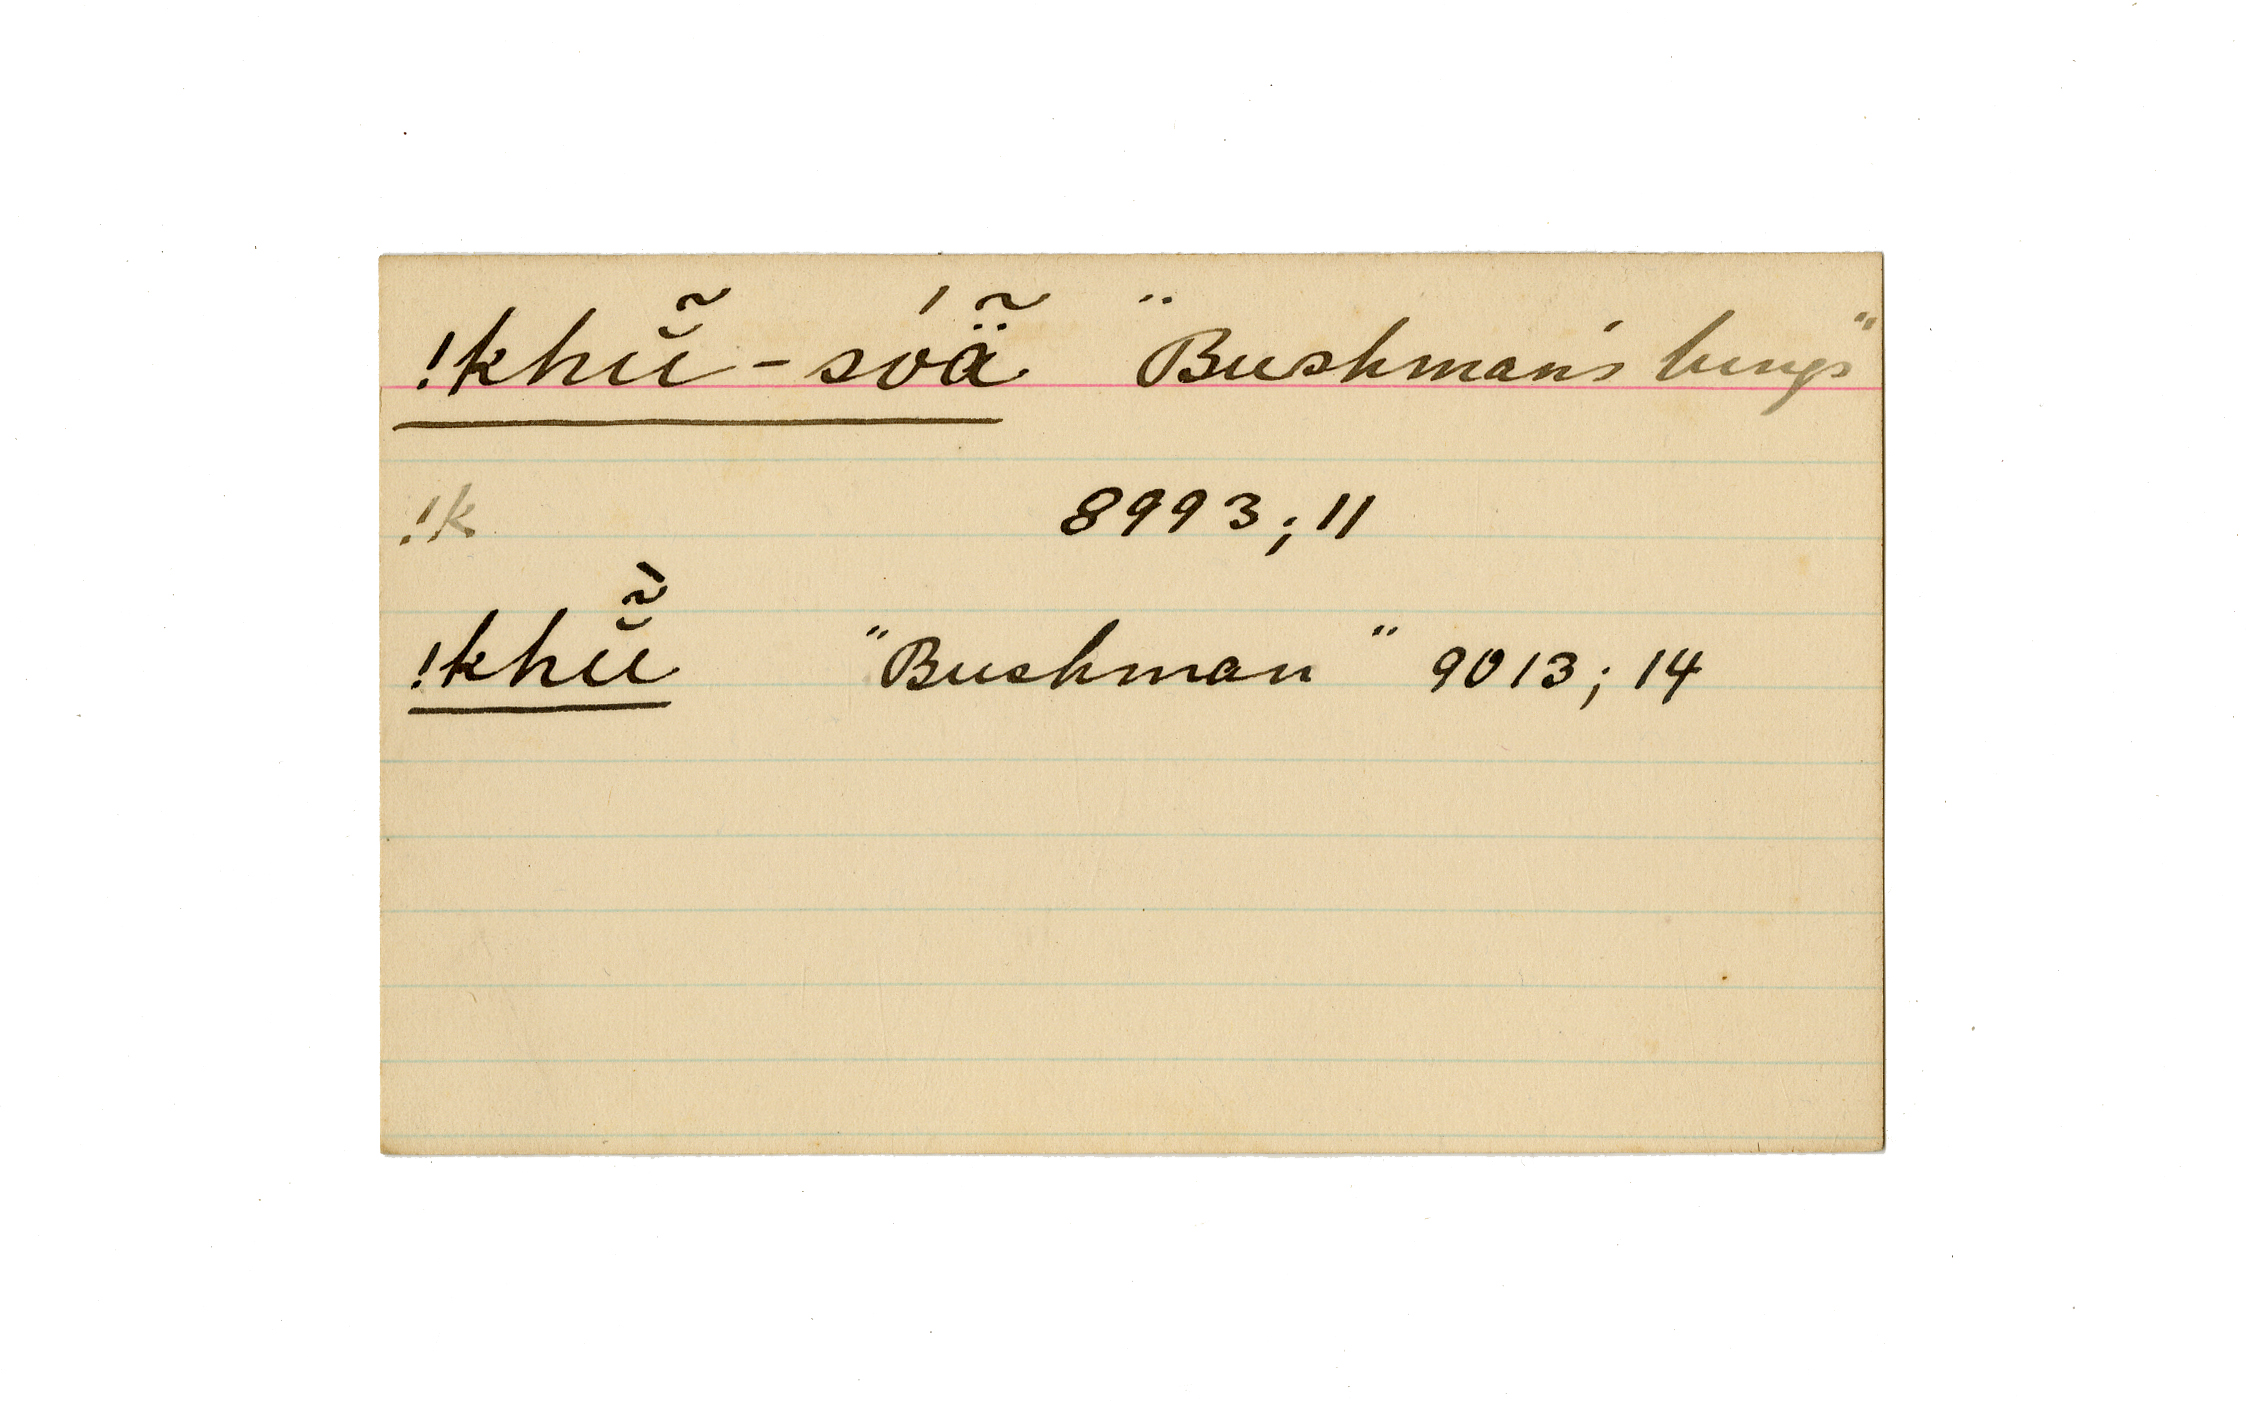 !khŭ̃ - sóä̃ "Bushman's lungs"
!k 8993; 11
!khŭ̃̀ "Bushman" 9013; 14